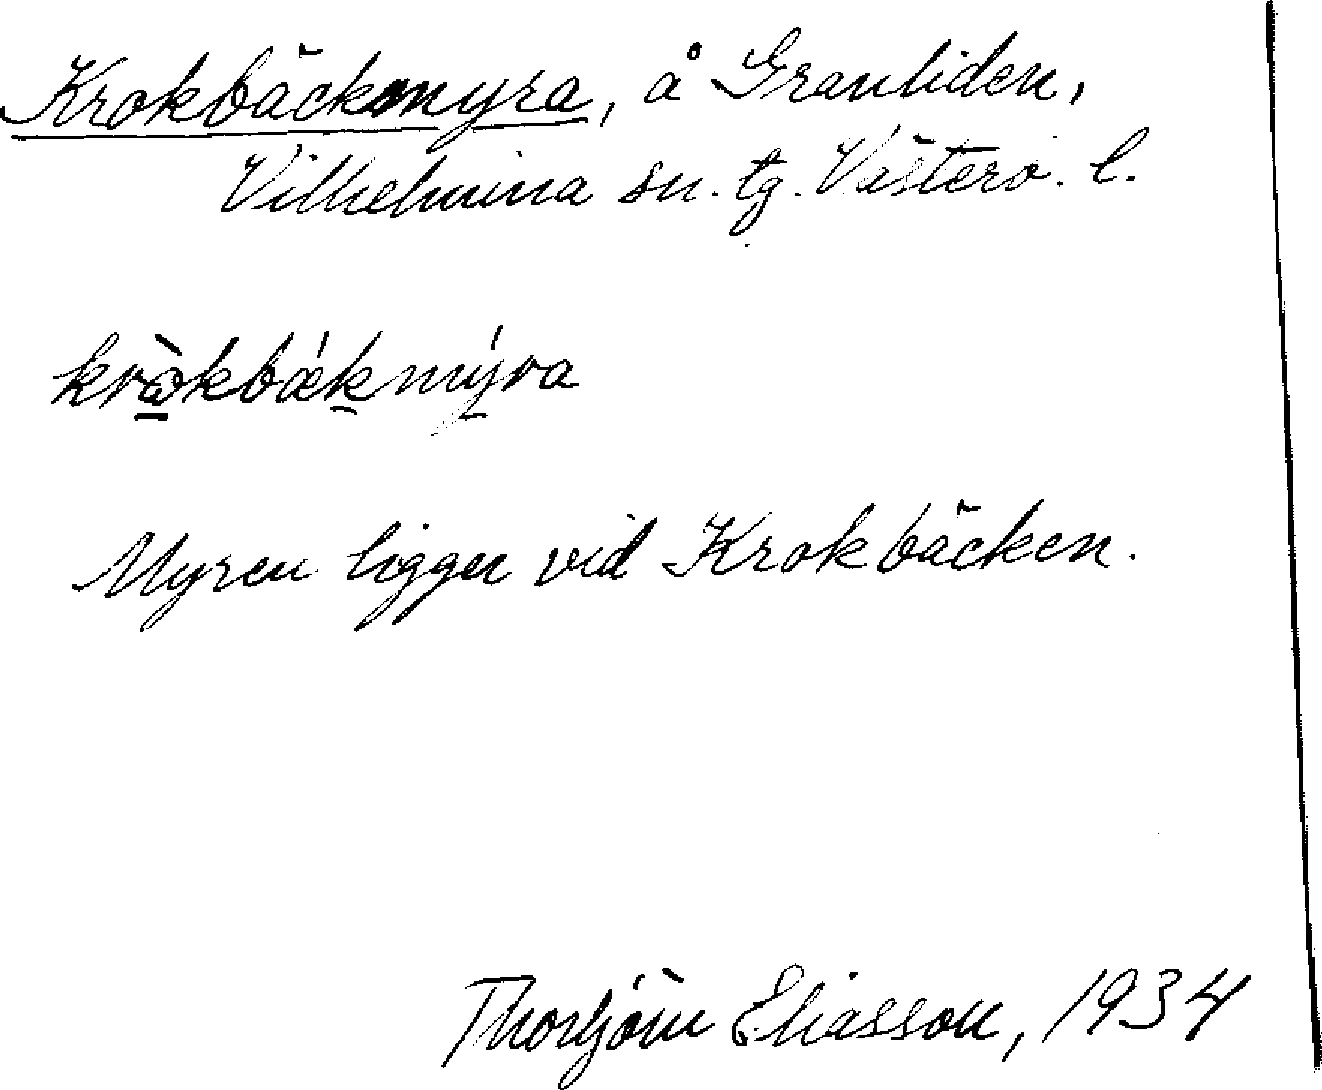 Krokbäckmyra, å Granliden,
Vilhelmina sn. tg. Västerb. l.
kròkbækmýra
Myren ligger vid Krokbäcken.
Thorbjörn Eliasson, 1934